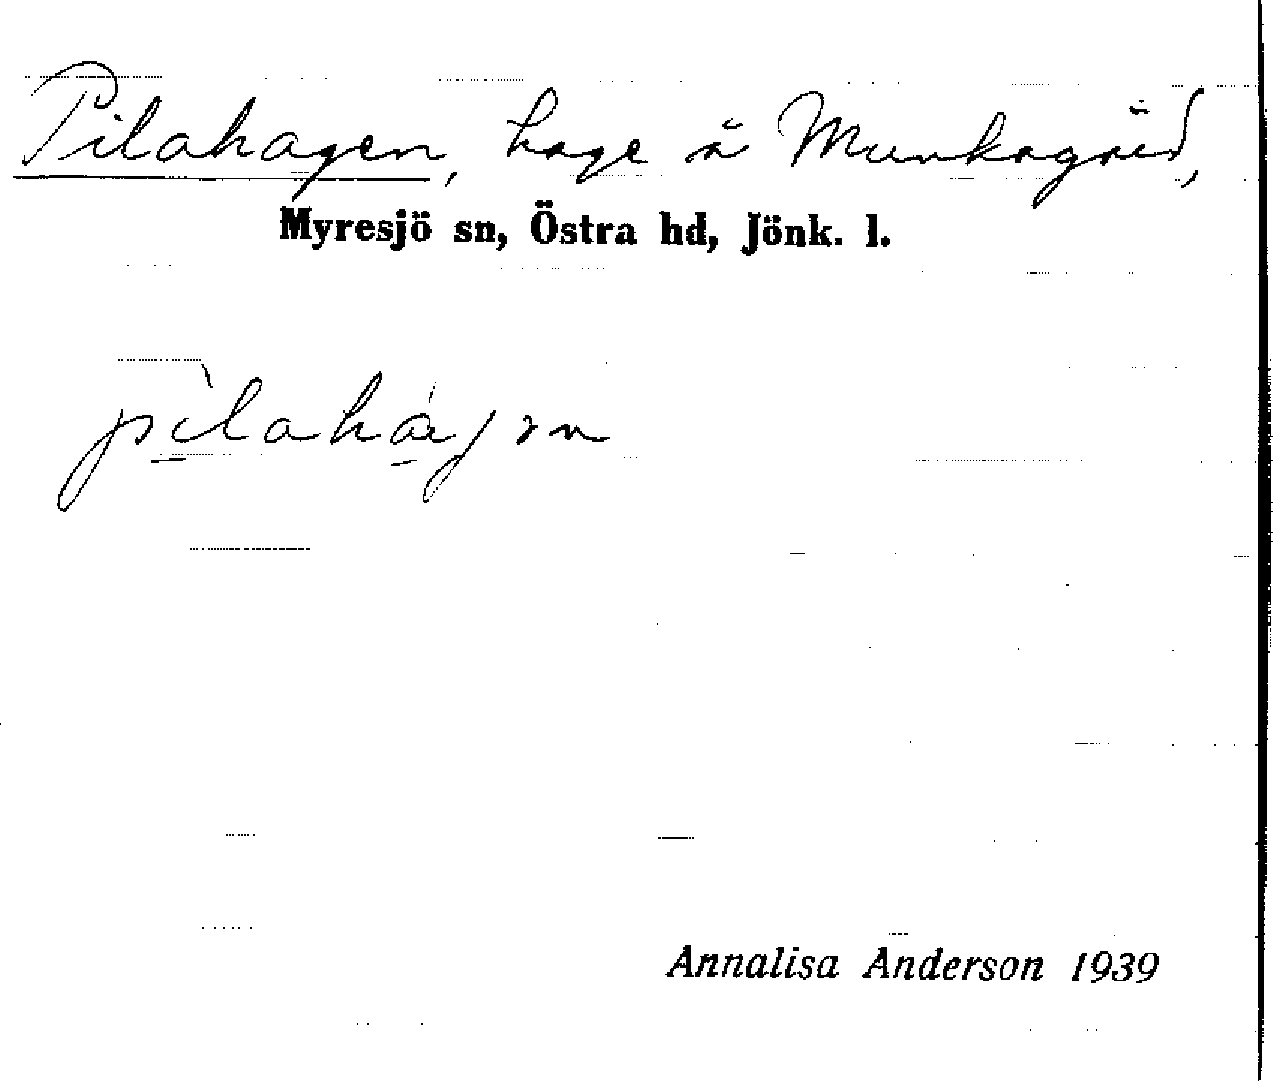 Pilahagen, hage å Munkagård,
Myresjö sn, Östra hd, Jönk. l.
pìlahágən
Annalisa Anderson 1939